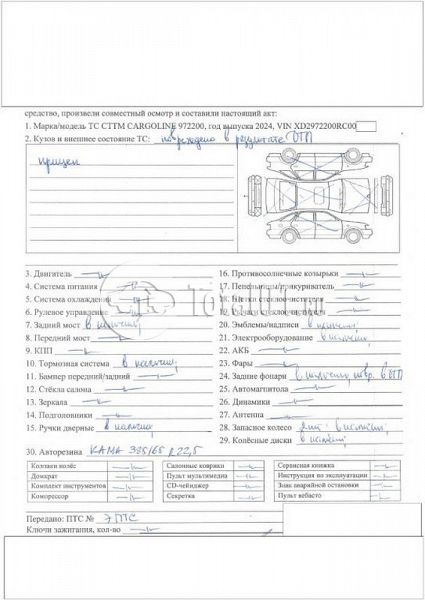 средство, произвели совместный осмотр и составили настоящий акт:
1. Марка/модель ТС СТТМ CARGOLINE 972200, год выпуска 2024, VIN XD2972200RC00
2. Кузов и внешнее состояние ТС: повреждено в результате ДТП
прицеп
3. Двигатель
4. Система питания
5. Система охлаждения
6. Рулевое управление
7. Задний мост в наличии
8. Передний мост
9. КПП
10. Тормозная система в наличии
11. Бампер передний/задний
12. Стёкла салона
13. Зеркала
14. Подголовники
15. Ручки дверные в наличии
16. Противосолнечные козырьки
17. Пепельницы/прикуриватель
18. Щетки стеклоочистителя
19. Рычаги стеклоочистителя
20. Эмблемы/надписи в наличии
21. Электрооборудование в наличии
22. АКБ
23. Фары
24. Задние фонари в наличии повр. в ДТП
25. Автомагнитола
26. Динамики
27. Антенна
28. Запасное колесо в наличии
29. Колёсные диски в наличии
30. Авторезина КАМА 385/65 R 22,5
Колпаки колёс Салонные коврики Сервисная книжка
Домкрат Пульт мультимедиа Инструкция по эксплуатации
Комплект инструментов CD-чейнджер Знак аварийной остановки
Компрессор Секретка Пульт вебасто
Передано: ПТС № ЭПТС
Ключи зажигания, кол-во